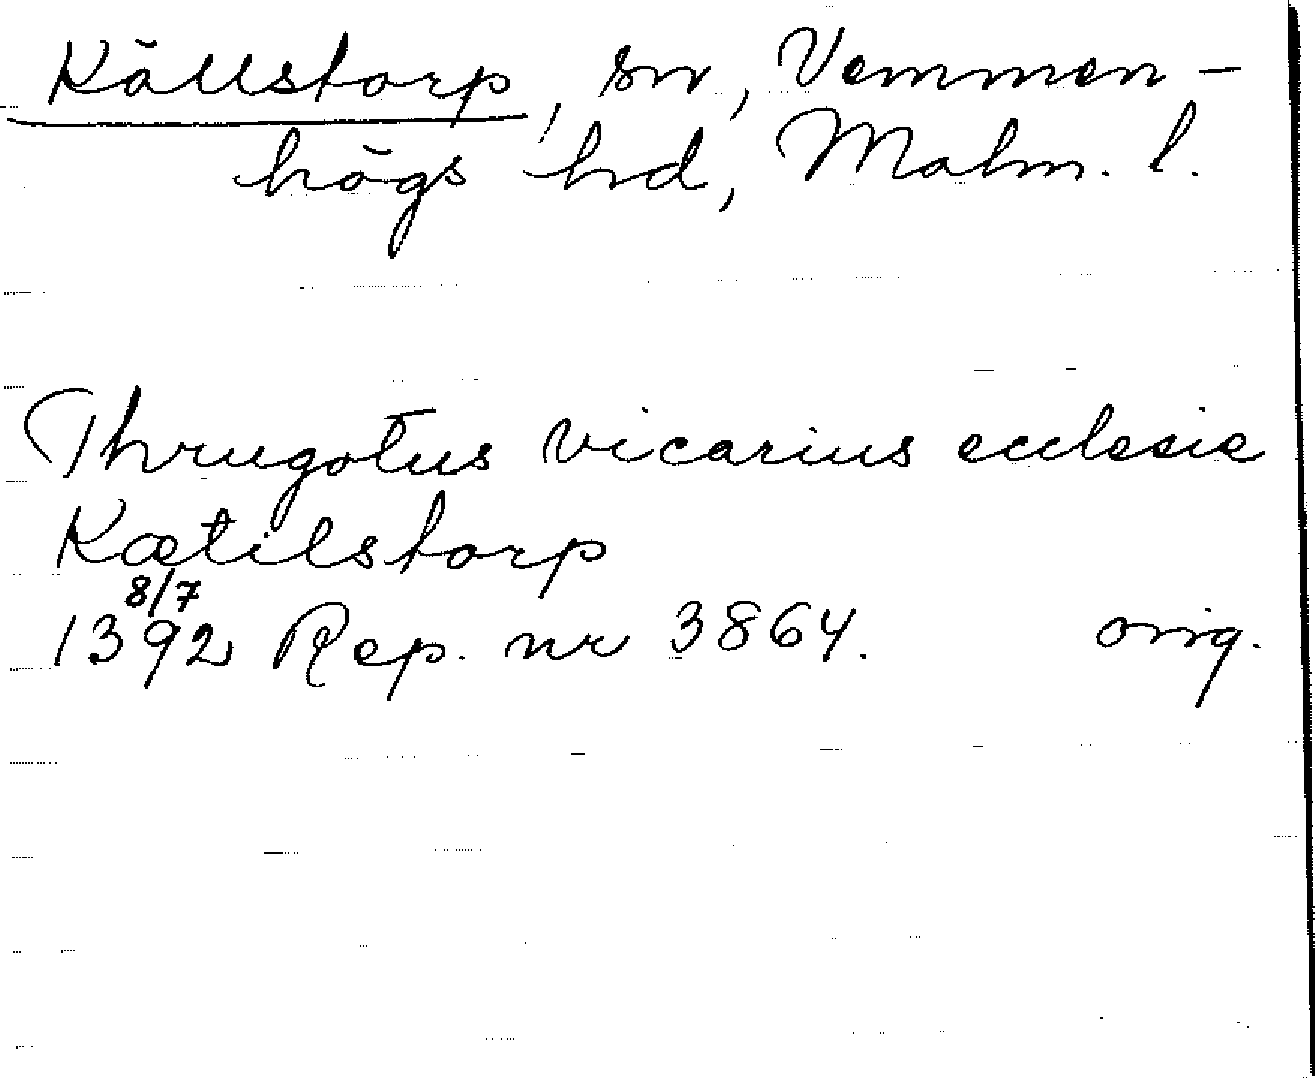 Källstorp, sn, Vemmen-
högs hd, Malm. l.
Thrugotus vicarius ecclesie
Kætilstorp
8/7
1392 Rep. nr 3864. orig.